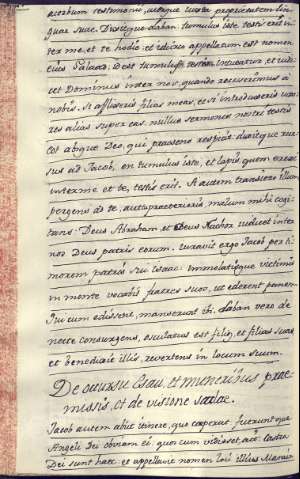 acerbum testimonio, utraque iuxta proprietatem lin-
guae suae. Dixitque Laban: tumulus iste testis erit in-
ter me, et te hodie: et idcirco appellatum est nomen
eius Galaad, id est tumulus testis. intueatur, et iudi-
cet Dominus inter nos, quando recesserimus à
nobis. si afflixeris filias meas, et si introduxeris uxo-
res alias super eas: nullus sermonis nostri testis
est absque Deo, qui praesens respicit. dixitque rur-
sus ad Jacob, en tumulus iste, et lapis, quem erexi
inter me et te, testis erit. si autem transiero illum
pergens ad te, aut praeterieris malum mihi cogi-
tans: Deus Abraham et Deus Nachor iudicet inter
nos Deus patris eorum. iuravit ergo Jacob per ti-
morem patris sui Isaac: immolatisque victimis
in monte vocavit fratres suos, ut ederent panem.
Qui cum edissent, manserunt ibi. Laban vero de
nocte consurgens, osculatus est filios, et filias suas,
et benedixit illis, reversus in locum suum.
De occursu Esau, et muneribus prae-
missis, et de visione
Jacob autem abiit itinere, quo coeperat: fueruntque
Angeli Dei obviam ei. quos cum vidisset, ait: Castra
Dei sunt haec: et appellavit nomen loci illius Manaim